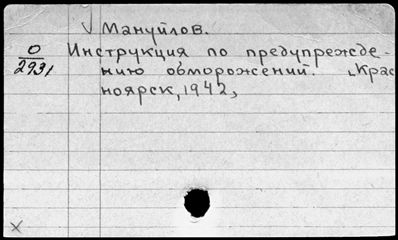 Мануйлов.
О
2931
Инструкция по предупрежде-
нию обморожений. Крас
ноярск, 1942,